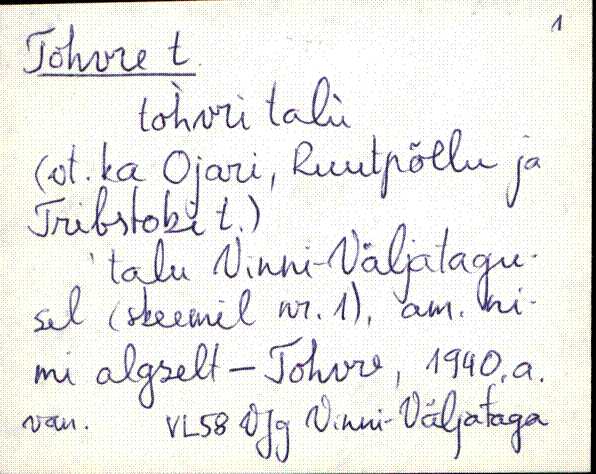 1
Tohvre t.
toh̀vri talù
(vt. ka Ojari, Ruutpõllu ja
Tribstoki t.)
'talu Vinni-Väljatagu-
sel (skeemil nr. 1), am. ni-
mi algselt – Tohvre, 1940. a.
van. VL58 VJg Vinni-Väljataga